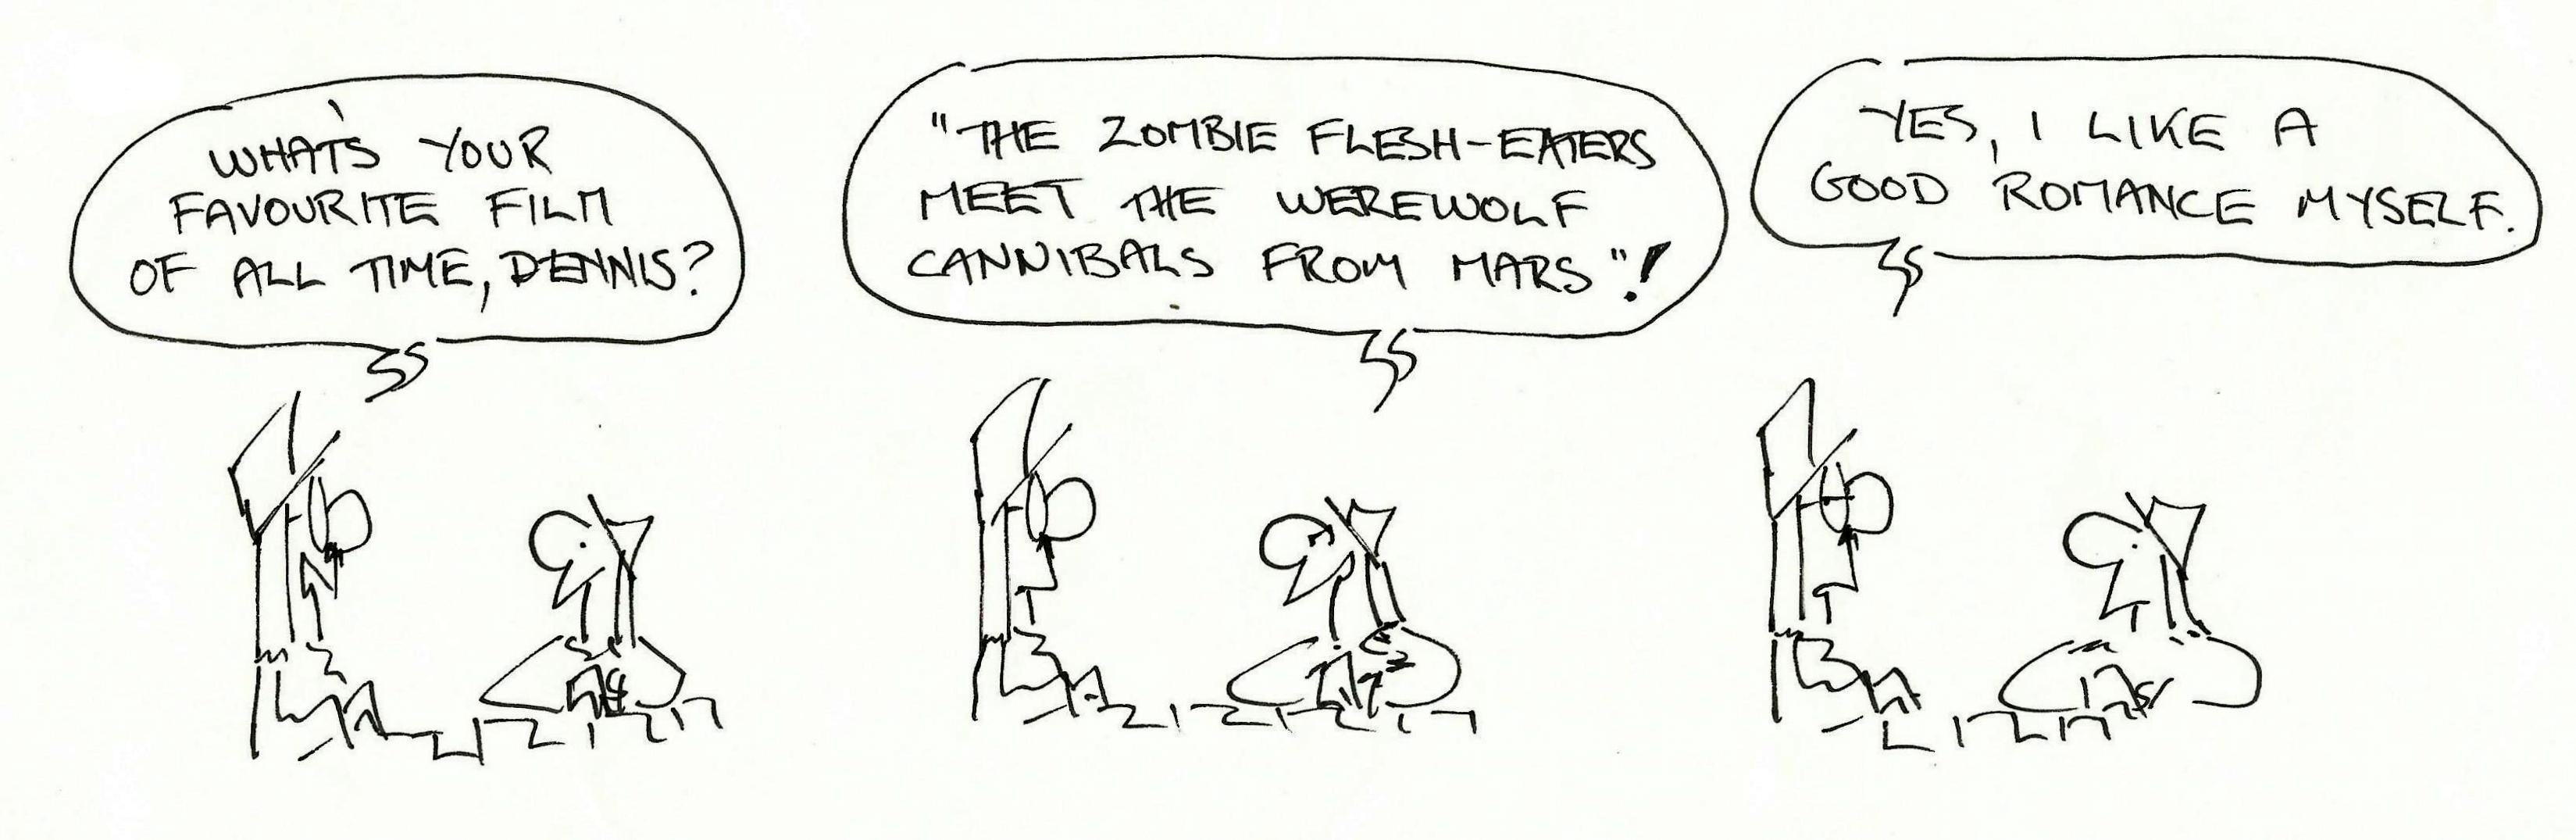 WHAT'S YOUR
FAVOURITE FILM
OF ALL TIME, DENNIS?
"THE ZOMBIE FLESH-EATERS
MEET THE WEREWOLF
CANNIBALS FROM MARS"!
YES, I LIKE A
GOOD ROMANCE MYSELF.